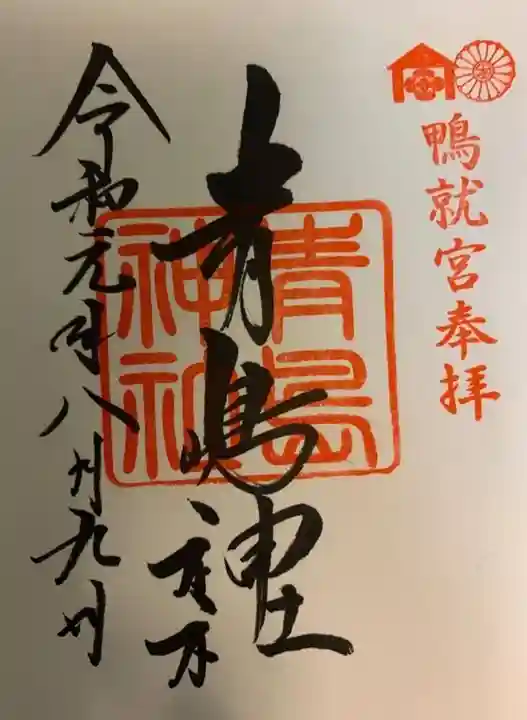 鴨就宮奉拝
青島神社
青嶋神社
令和元年八月九日